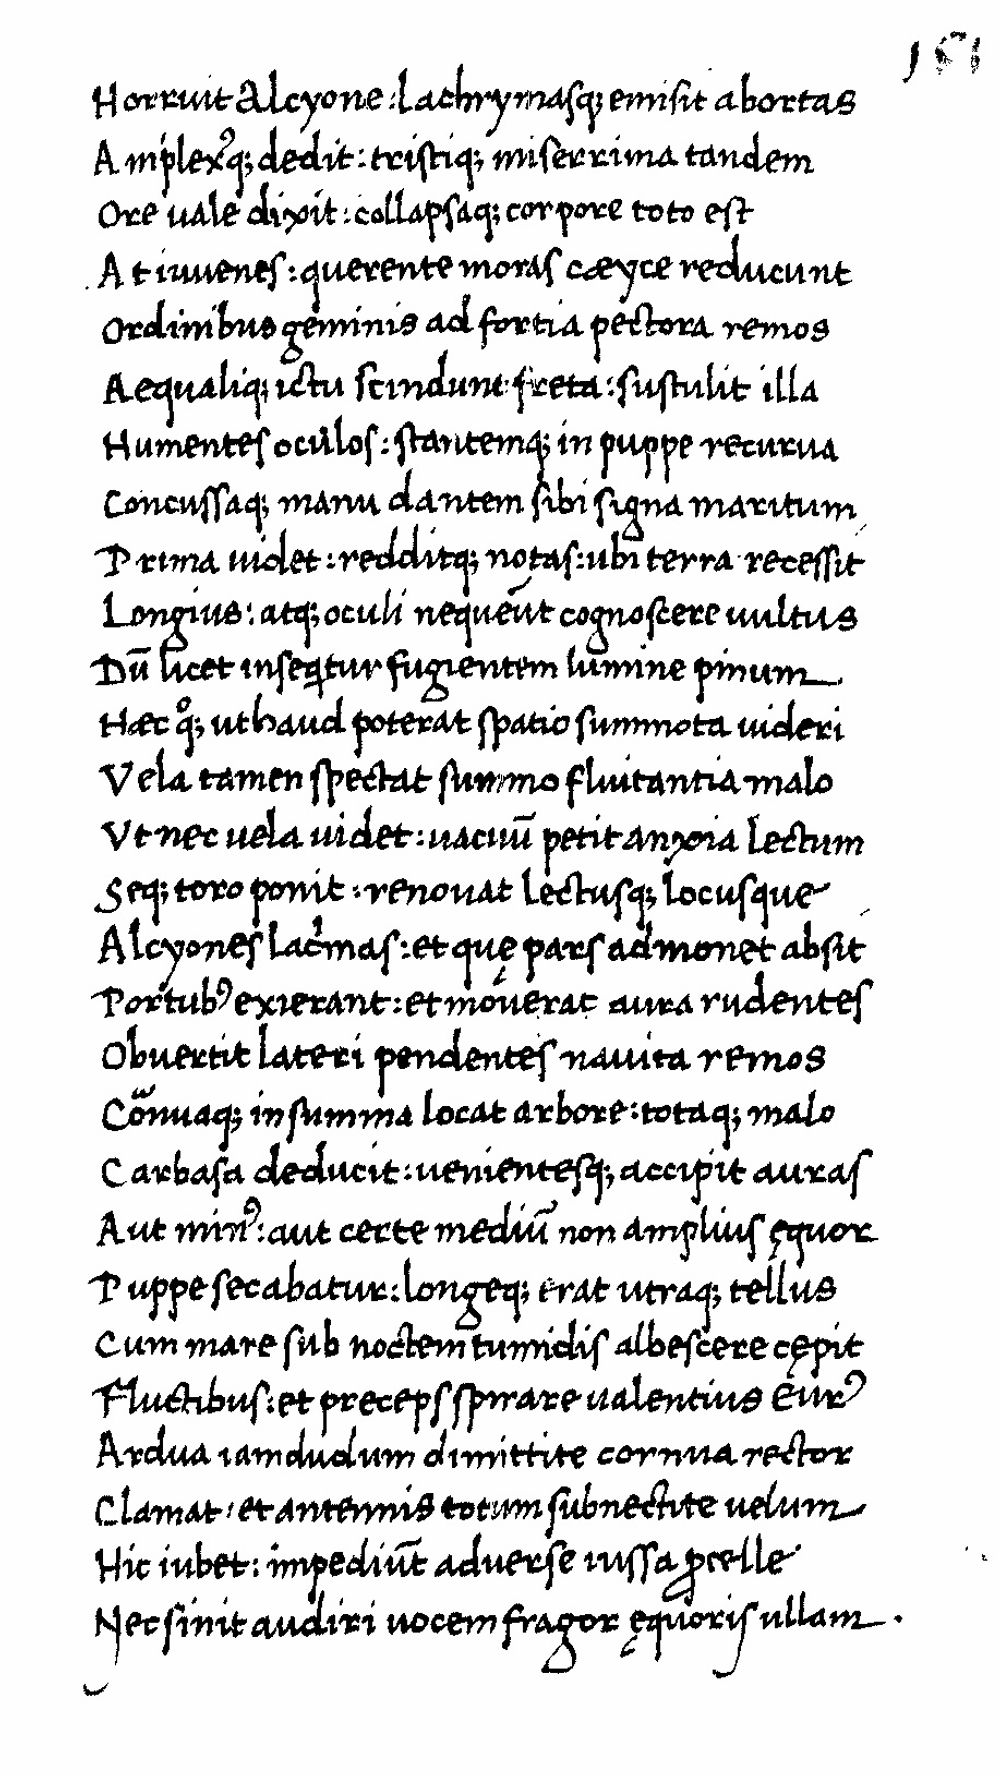 151
Horruit Alcyone: lachrymasq; emisit abortas
Amplexꝰq; dedit: tristiq; miserrima tandem
Ore uale dixit: collapsaq; corpore toto est
At iuuenes: querente moras cæyce reducunt
Ordinibus geminis ad fortia pectora remos
Aequaliq; ictu scindunt freta: sustulit illa
Humentes oculos: stantemq; in puppe recurua
Concussaq; manu dantem sibi signa maritum
Prima uidet: redditq; notas: ubi terra recessit
Longius: atq; oculi nequeūt cognoscere uultus
Dū licet inseqͥtur fugientem lumine pinum
Hæc qͦq; ut haud poterat spatio summota uideri
Vela tamen spectat summo fluitantia malo
Vt nec uela uidet: uacuū petit anxia lectum
Seq; toro ponit: renouat lectusq; locusque
Alcyones lacͥmas: et quę pars admonet absit
Portubꝰ exierant: et mouerat aura rudentes
Obuertit lateri pendentes nauita remos
Coͬnuaq; in summa locat arbore: totaq; malo
Carbasa deducit: uenientesq; accipit auras
Aut minꝰ: aut certe mediū non amplius ęquor
Puppe secabatur: longeq; erat utraq; tellus
Cum mare sub noctem tumidis albescere cępit
Fluctibus: et preceps spirare ualentius Eurꝰ
Ardua iamdudum dimittite cornua rector
Clamat: et antennis totum subnectite uelum
Hic iubet: impediūt aduerse iussa ꝓcelle
Nec sinit audiri uocem fragor ęquoris ullam.